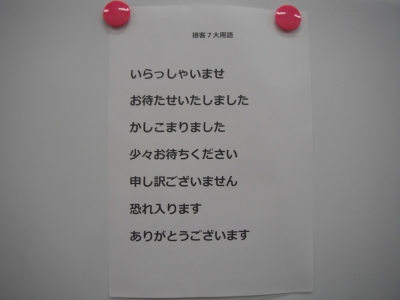 接客7大用語
いらっしゃいませ
お待たせいたしました
かしこまりました
少々お待ちください
申し訳ございません
恐れ入ります
ありがとうございます